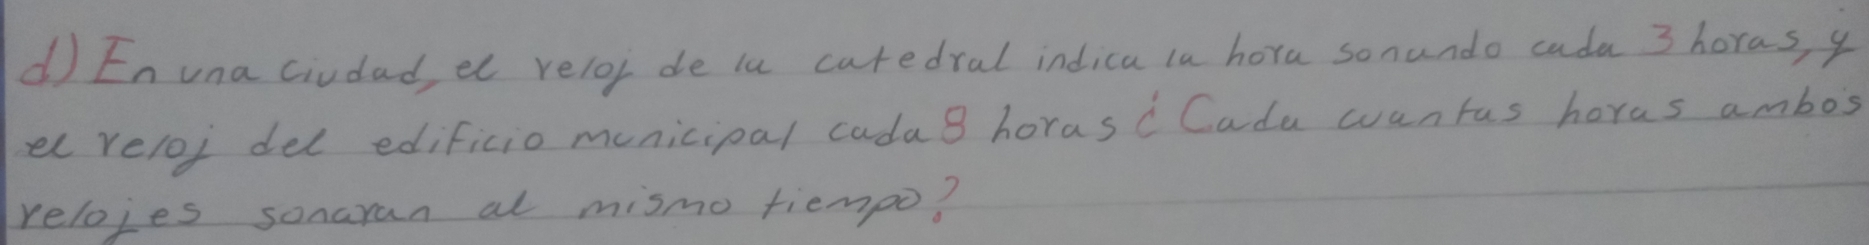 d) En una ciudad, el reloj de la catedral indica la hora sonando cada 3 horas, y
el reloj del edificio municipal cada 8 horas ¿Cada cuantas horas ambos
relojes sonaran al mismo tiempo?